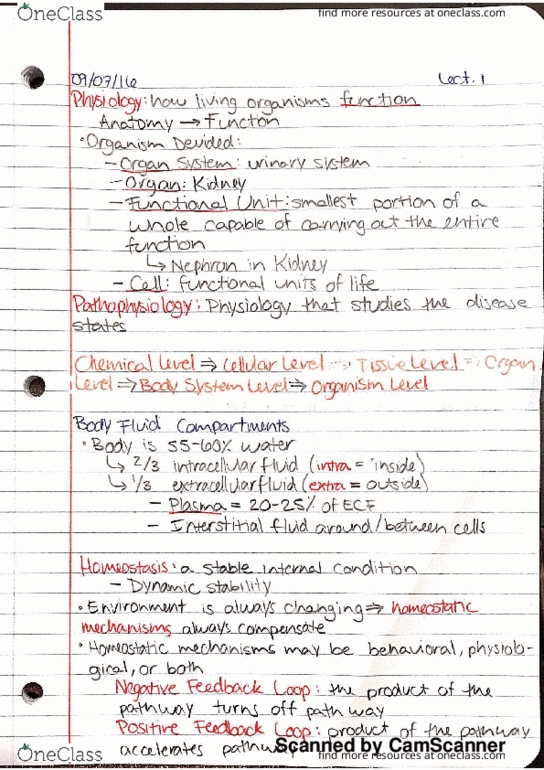 OneClass
find more resources at oneclass.com
09/07/16 Lect. 1
Physiology: how living organisms function
Anatomy → Function
• Organism Devided:
- Organ System: urinary system
- Organ: Kidney
- Functional Unit: smallest portion of a
whole capable of carrying out the entire
function
↳ Nephron in Kidney
- Cell: functional units of life
Pathophysiology: Physiology that studies the disease
states
Chemical Level ⇒ Cellular Level ⇒ Tissue Level ⇒ Organ
Level ⇒ Body System Level ⇒ Organism Level
Body Fluid Compartments
• Body is 55-60% water
↳ 2/3 intracellular fluid (intra = inside)
↳ 1/3 extracellular fluid (extra = outside)
- Plasma = 20-25% of ECF
- Interstitial fluid around/between cells
Homeostasis: a stable internal condition
- Dynamic stability
• Environment is always changing ⇒ homeostatic
mechanisms always compensate
• Homeostatic mechanisms may be behavioral, physiolo-
gical, or both
Negative Feedback Loop: the product of the
pathway turns off pathway
Positive Feedback Loop: product of the pathway
accelerates pathway
Scanned by CamScanner
OneClass
find more resources at oneclass.com